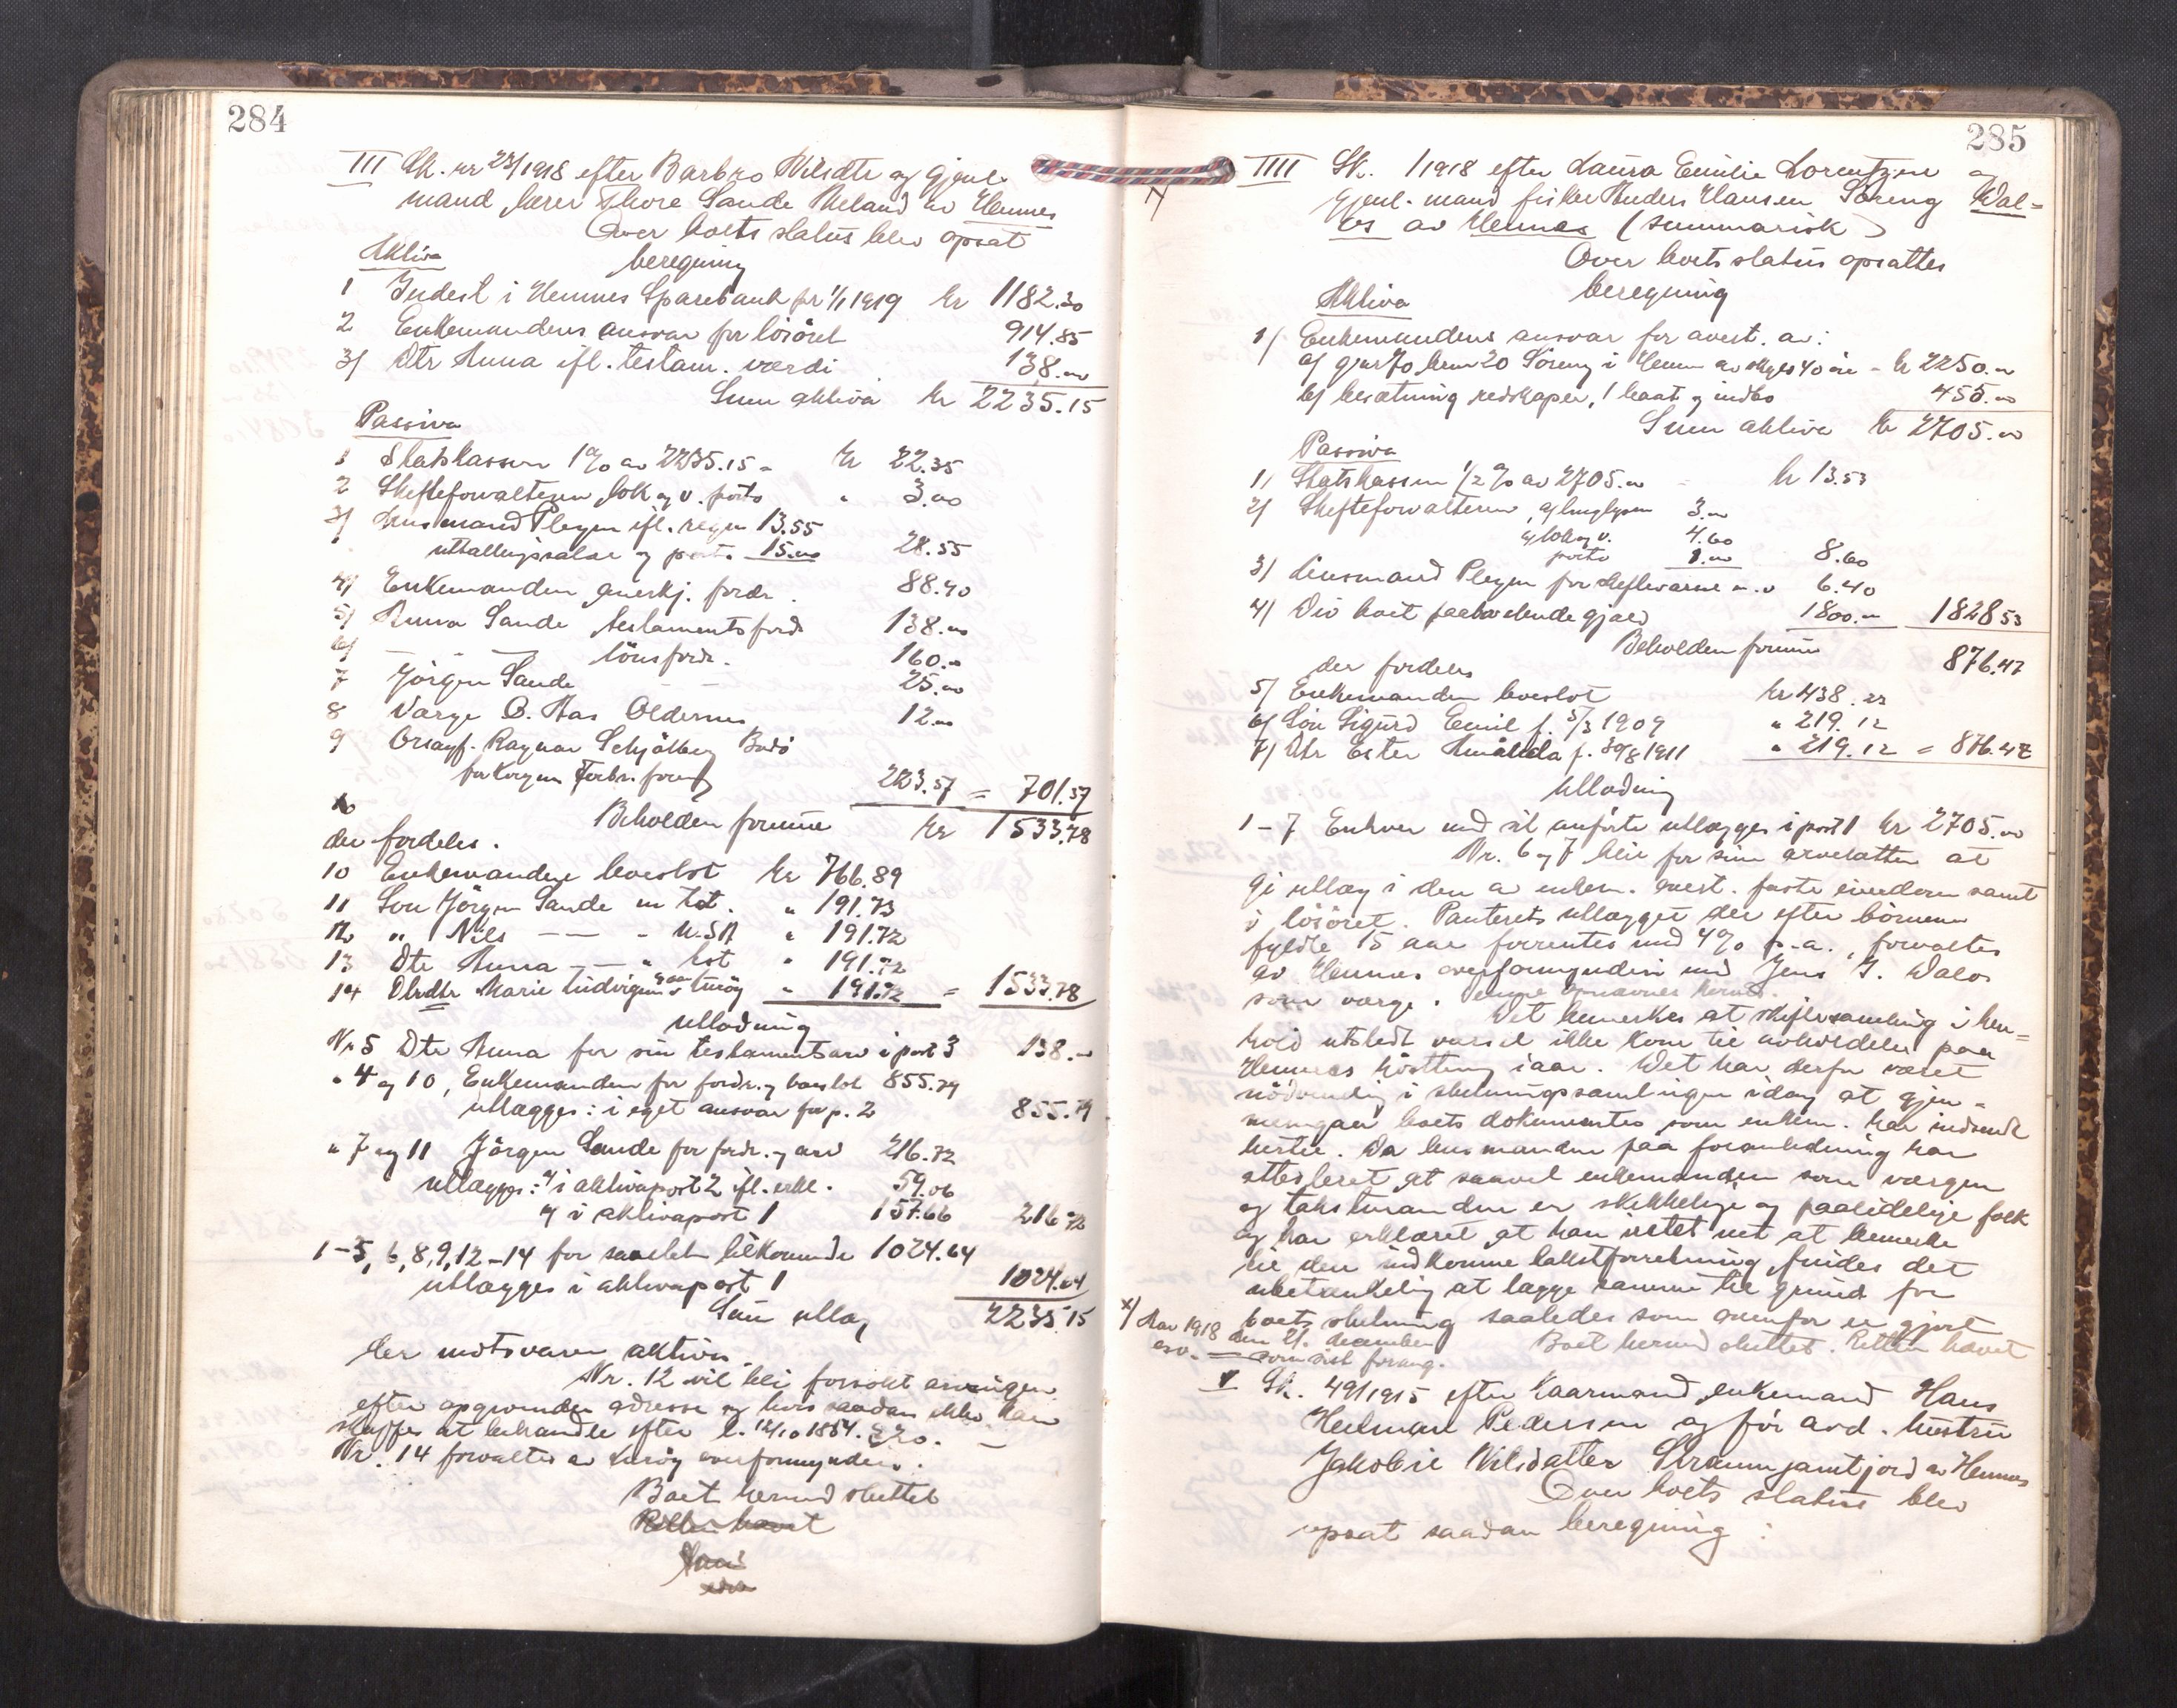 284
III Sk. nr 23/1918 efter Barbro Nilsdtr og gjenl.
mand lærer Thore Sande Meland av Hemnes
Over boets status blev opsat
Aktiva beregning
1 Indest i Hemnes Sparebank pr 1/1 1919 kr 1182.30
2 Enkemandens ansvar for lösöret 914.85
3) Dtr Anna ifl. testam. værdi 138.00
Sum aktiva kr 2235.15
Passiva
1 Statskassen 1% av 2235.15 = kr 22.35
2 Skifteforvalteren lok og v. porto " 3.00
3) Lensmand Plegen ifl. regn 13.55
utballingssalær og porto 15.00 28.55
4) Enkemanden anerkj. fordr. 88.90
5) Anna Sande testamentsfordr 138.00
6) — " — lönsfordr. 160.00
7 Jörgen Sande — — 25.00
8 Værge O. Aas Oldernes 12.00
9 Orsagf. Ragnar Schjölberg Bodö
for Korgen Forbr. foren 223.57 = 701.57
10 Beholden formue kr 1533.78
der fordeles.
10 Enkemandens boeslot kr 766.89
11 Sön Jörgen Sande m hot. " 191.73
12 " Nils — — " U.S.A " 191.72
13 Dtr Anna — — " hot " 191.72
14 Dtrdtr Marie Ludvigsen 9 aar Luröy " 191.72 = 1533.78
Utlodning
Nr 5 Dtr Anna for sin testamentsarv i post 3 138.00
" 4 og 10, Enkemanden for fordr. og boeslot 855.79
utlægges: i eget ansvar for p. 2 855.79
" 7 og 11 Jörgen Sande for fordr. og arv 216.72
utlægges: a) i aktivapost 2 ifl. erkl. 59.06
b) i aktivapost 1 157.66 216.72
1-3, 6, 8, 9, 12-14 for saaledes tilkommende 1024.64
utlægges i aktivapost 1 1024.64
Sum utlæg 2235.15
der motsvarer aktiva.
Nr. 12 vil bli forsøkt arvingen
efter opgivende adresse og hvis saadan ikke kan
skaffes at behandle efter l. 12/10 1857. § 20. —
Nr. 14 forvaltes av Luröy overformynderi.
Boet hermed sluttet
Retten hævet
285
IIII Sk. /1918 efter Laura Emilie Lorentzen og
gjenl. mand fisker Anders Hansen Söreng Dal=
os av Hemnes (summarisk)
Over boets status opsattes
Aktiva beregning
1) Enkemandens ansvar for avest. av:
a) gnr 70, brnr 20 Söreng i Hemn av skyld 40 øre - kr 2250.00
b) besætning redskaper, 1 baat og indbo 455.00
Sum aktiva kr 2705.00
Passiva
1) Statskassen 1/2 % av 2705.00 - kr 13.53
2) Skifteforvalteren, a) kunglysn 3.00
b) lok og v. 4.60
porto 1.00 8.60
3) Lensmand Plegen for skiftevarsel m. v 6.40
4) Div boet paahvilende gjæld 1800.00 1828.53
Beholden formue 876.47
der fordeles
5) Enkemanden boeslot kr 438.23
6) Sön Sigurd Emil f. 5/3 1909 " 219.12
7) Dtr Ester Amanda f. 30/8 1911 " 219.12 = 876.47
Utlodning
1-7 Enhver ved sit anförte utlægges i post 1 kr 2705.00
Nr. 6 og 7 blir for sine arvelatter at
gi utlæg i den av enkem. avest. faste eiendom samt
i lösöret. Panterets utlægget der efter börnenes
fyldte 15 aar forrentes med 4% p.a., forvaltes
av Hemnes overformynderi med Jens J. Dalos
som værge.
Det bemerkes at skiftesamling i hen=
hold utstedt varsel ikke kom til avholdelse paa
Hemnes hösttting iaar. Det har derfor været
nödvendig i slutningssamlingen idag at gjen=
nemgaa boets dokumenter som enkem. har indsendt
hertil. Da lensmanden paa foranledning har
attesteret at saavel enkemanden som værgen
og takstmanden er skikkelige og paalidelige folk
og har erklæret at han intet vet at bemerke
til den indkomne takstforretning, findes det
ubetænkelig at lægge samme til grund for
boets slutning saaledes som ovenfor er gjort
Boet hermed sluttet. Retten hævet
x) Aar 1918 den 21. december
osv. — som sist forung.
V Sk. 49/1915 efter kaarmand enkemand Hans
Heilman Pedersen og för avd. hustru
Jakobie Nilsdatter Straumjamtjord av Hemnes
Over boets status blev
opsat saadan beregning: